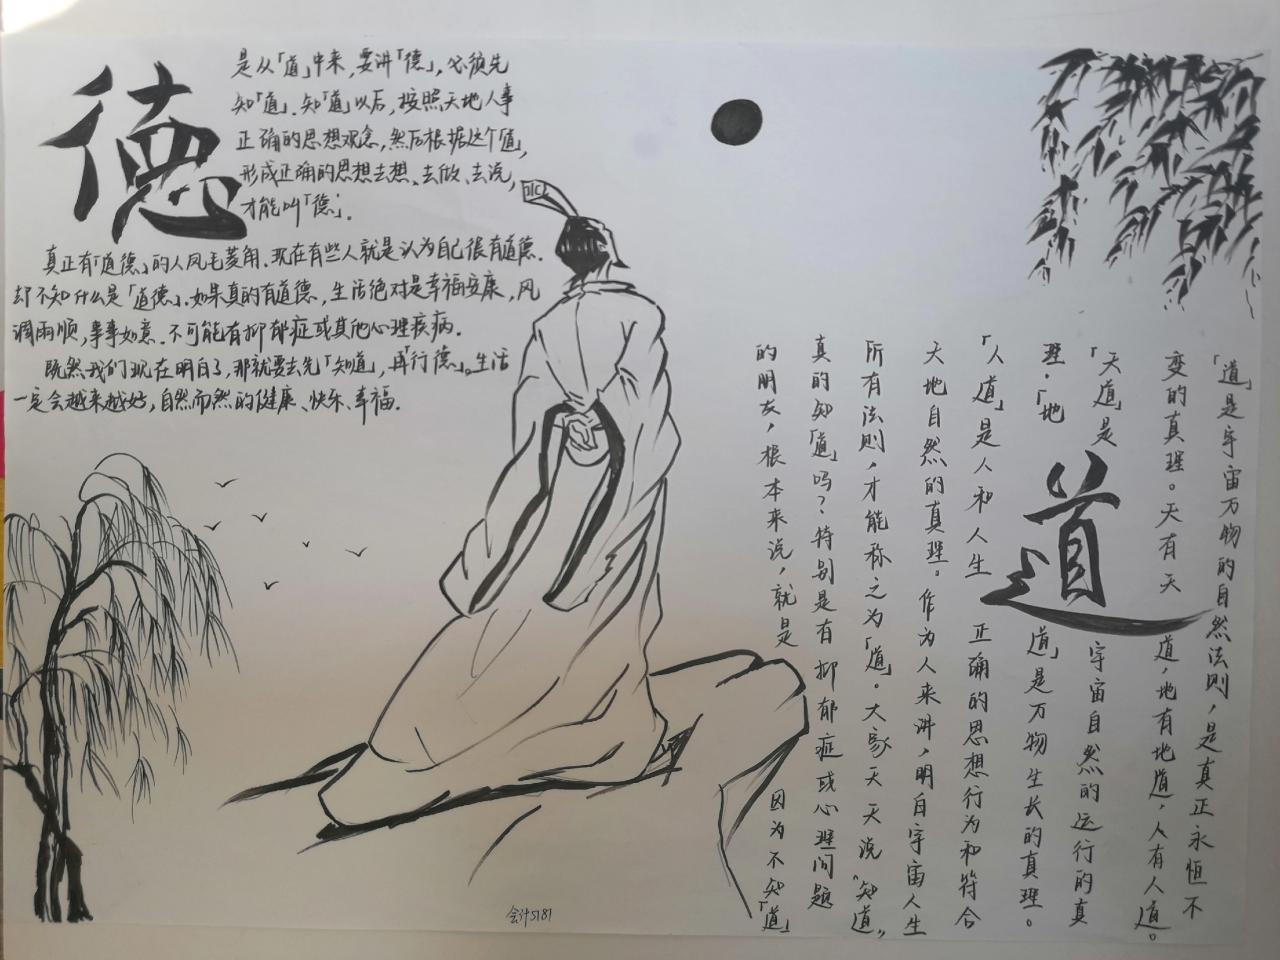 德
是从「道」中来,要讲「德」,必须先
知「道」.知「道」以后,按照天地人事
正确的思想观念,然后根据这个值,
形成正确的思想去想、去做、去说,
才能叫「德」.
真正有「道德」的人风毛菱角.现在有些人就是认为自己很有道德.
却不知什么是「道德」.如果真的有道德,生活绝对是幸福安康,风
调雨顺,事事如意.不可能有抑郁症或其他心理疾病.
既然我们现在明白了,那就要去先「知道」,再「行德」。生活
一定会越来越好,自然而然的健康、快乐、幸福.
道
「道」是宇宙万物的自然法则,是真正永恒不
变的真理。天有天道,地有地道,人有人道。
「天道」是宇宙自然的运行的真
理.「地道」是万物生长的真理。
「人道」是人和人生正确的思想行为和符合
天地自然的真理。作为人来讲,明白宇宙人生
所有法则,才能称之为「道」。大家天天说“知道”,
真的知「道」吗?特别是有抑郁症或心理问题
的朋友,根本来说,就是因为不知「道」
会计5181